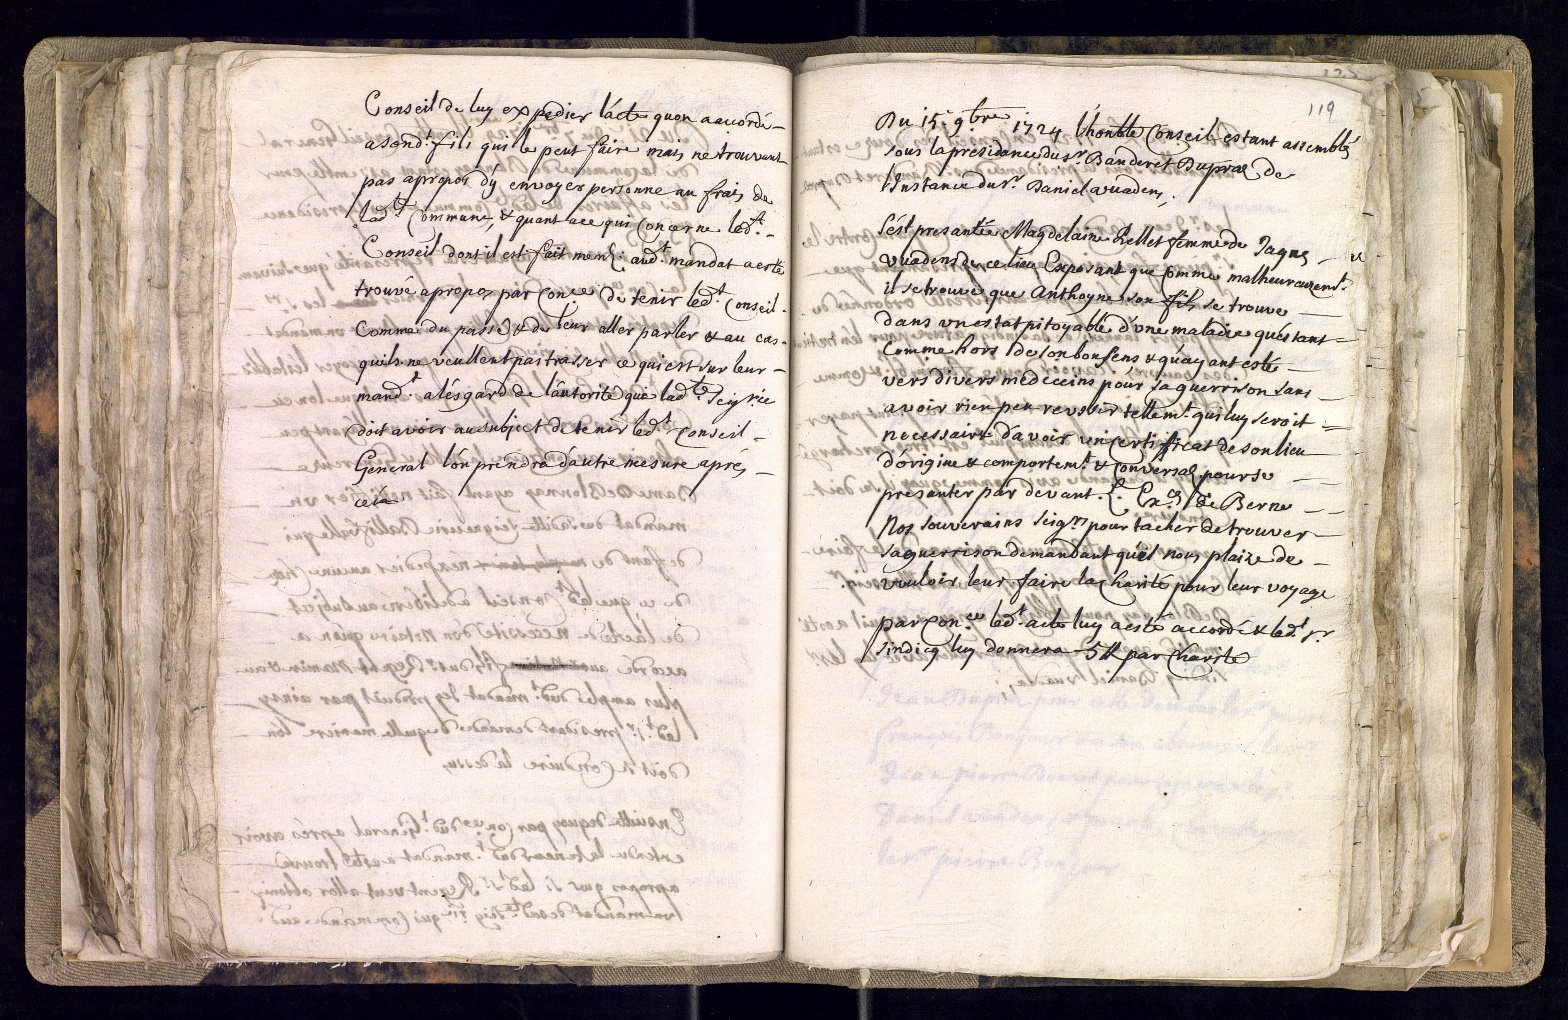 Conseil de luy expedier l'acte quon a accordé
a sond.t fils quil le peut faire mais ne trouvant
pas apropos dÿ envoyer personne au frais de
lad.te Commune, & quant a ce qui Concerne led.t
Conseil dont il est fait men.: aud.t mandat a esté
trouvé apropos par Con.ce de tenir led.t Conseil
Comme du passé & de leur aller parler & au cas
quils ne veullent pas trasser ce qui est sur leur
mand.t a lésgard de lautorité que lad.te Seig.rie
doit avoir au subject de tenir led.t Conseil
General lón prendra dautre mesure aprés
cela
119
Du 15.e 9bre 1724 l'honble Conseil estant assemblé
sous la présidance du sr. Banderet Dupraz de
l'instance du sr. Daniel Vuadens.
S'ést presantée Magdelaine Rellet femme de Jaques
Vuadens de ce lieu Exposant que Comme malheureusem.t
il se trouve que Anthoyne son fils se trouve
dans un estat pitoyable d'vne maladie quéstant
Comme hors de son bon sens & quáyant esté
vers divers medeceins pour sa guerrison sans
avoir rien peu recevoir tellem.t quil luy seroit
necessaire d'avoir un certifficat de son lieu
d'origine & comportem.t & Conversaõ pour se
présanter par devant L. Ex.ces de Berne
Nos souverains Seig.rs pour tacher de trouver
sa guerrison demandant quél nous plaize de
vouloir leur faire la charité pour leur voyage
par Con.ce led.t acte luy a esté accordé & led.t sr
sindicq luy donnera 5 ff par Charité